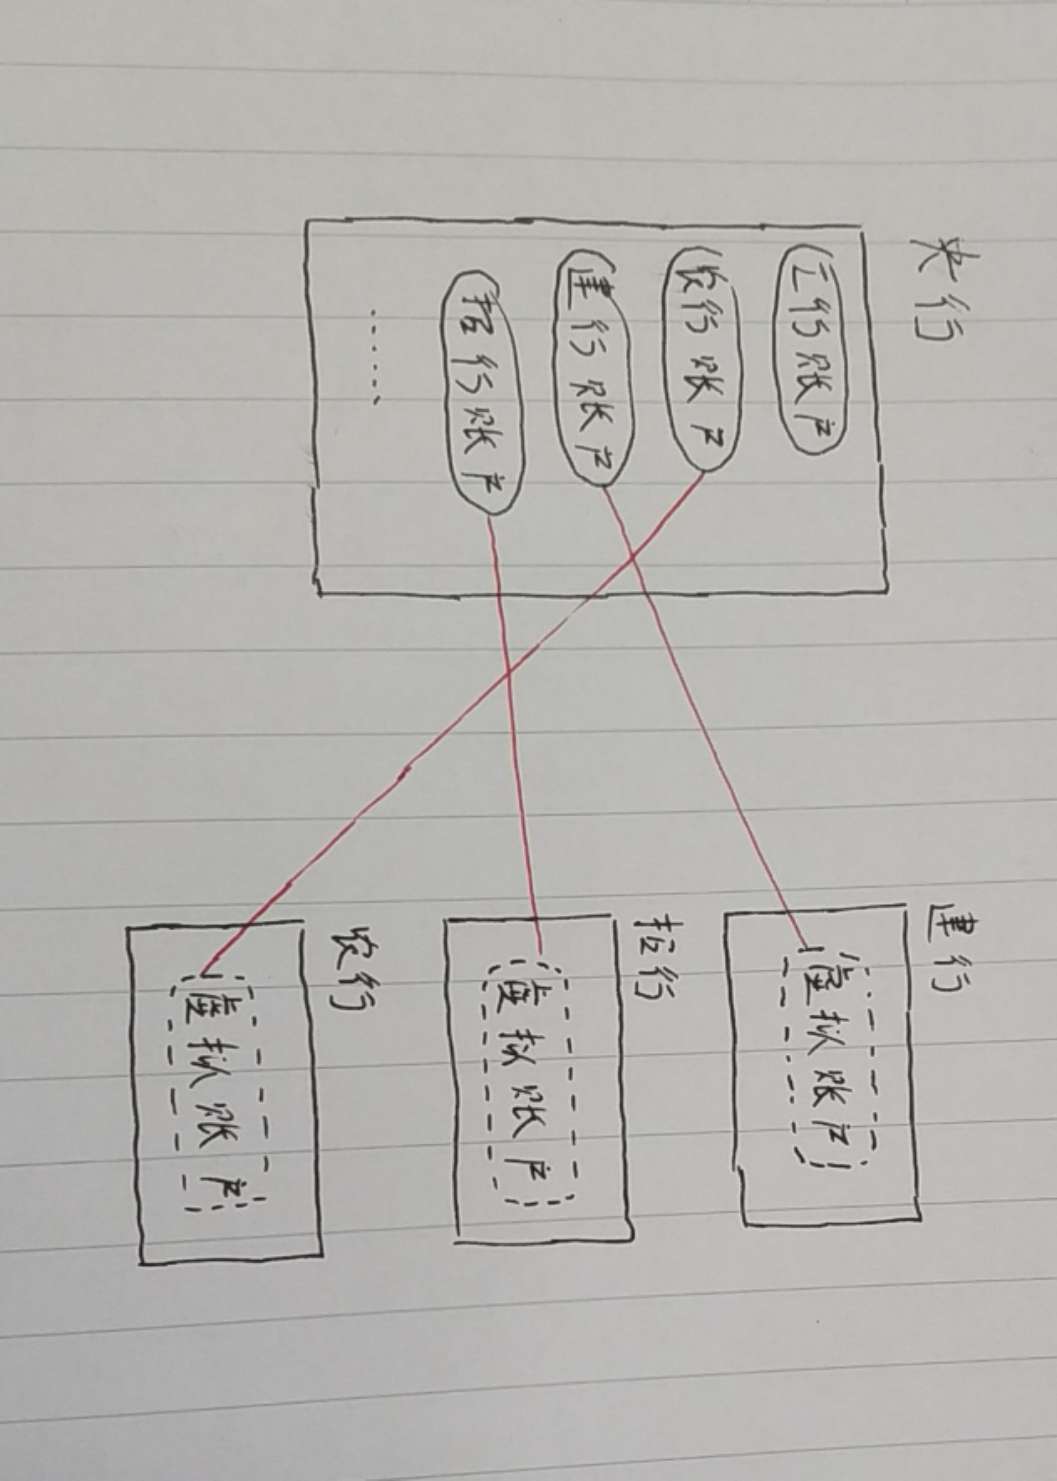 央行
工行账户
农行账户
建行账户
招行账户
……
建行
虚拟账户
招行
虚拟账户
农行
虚拟账户